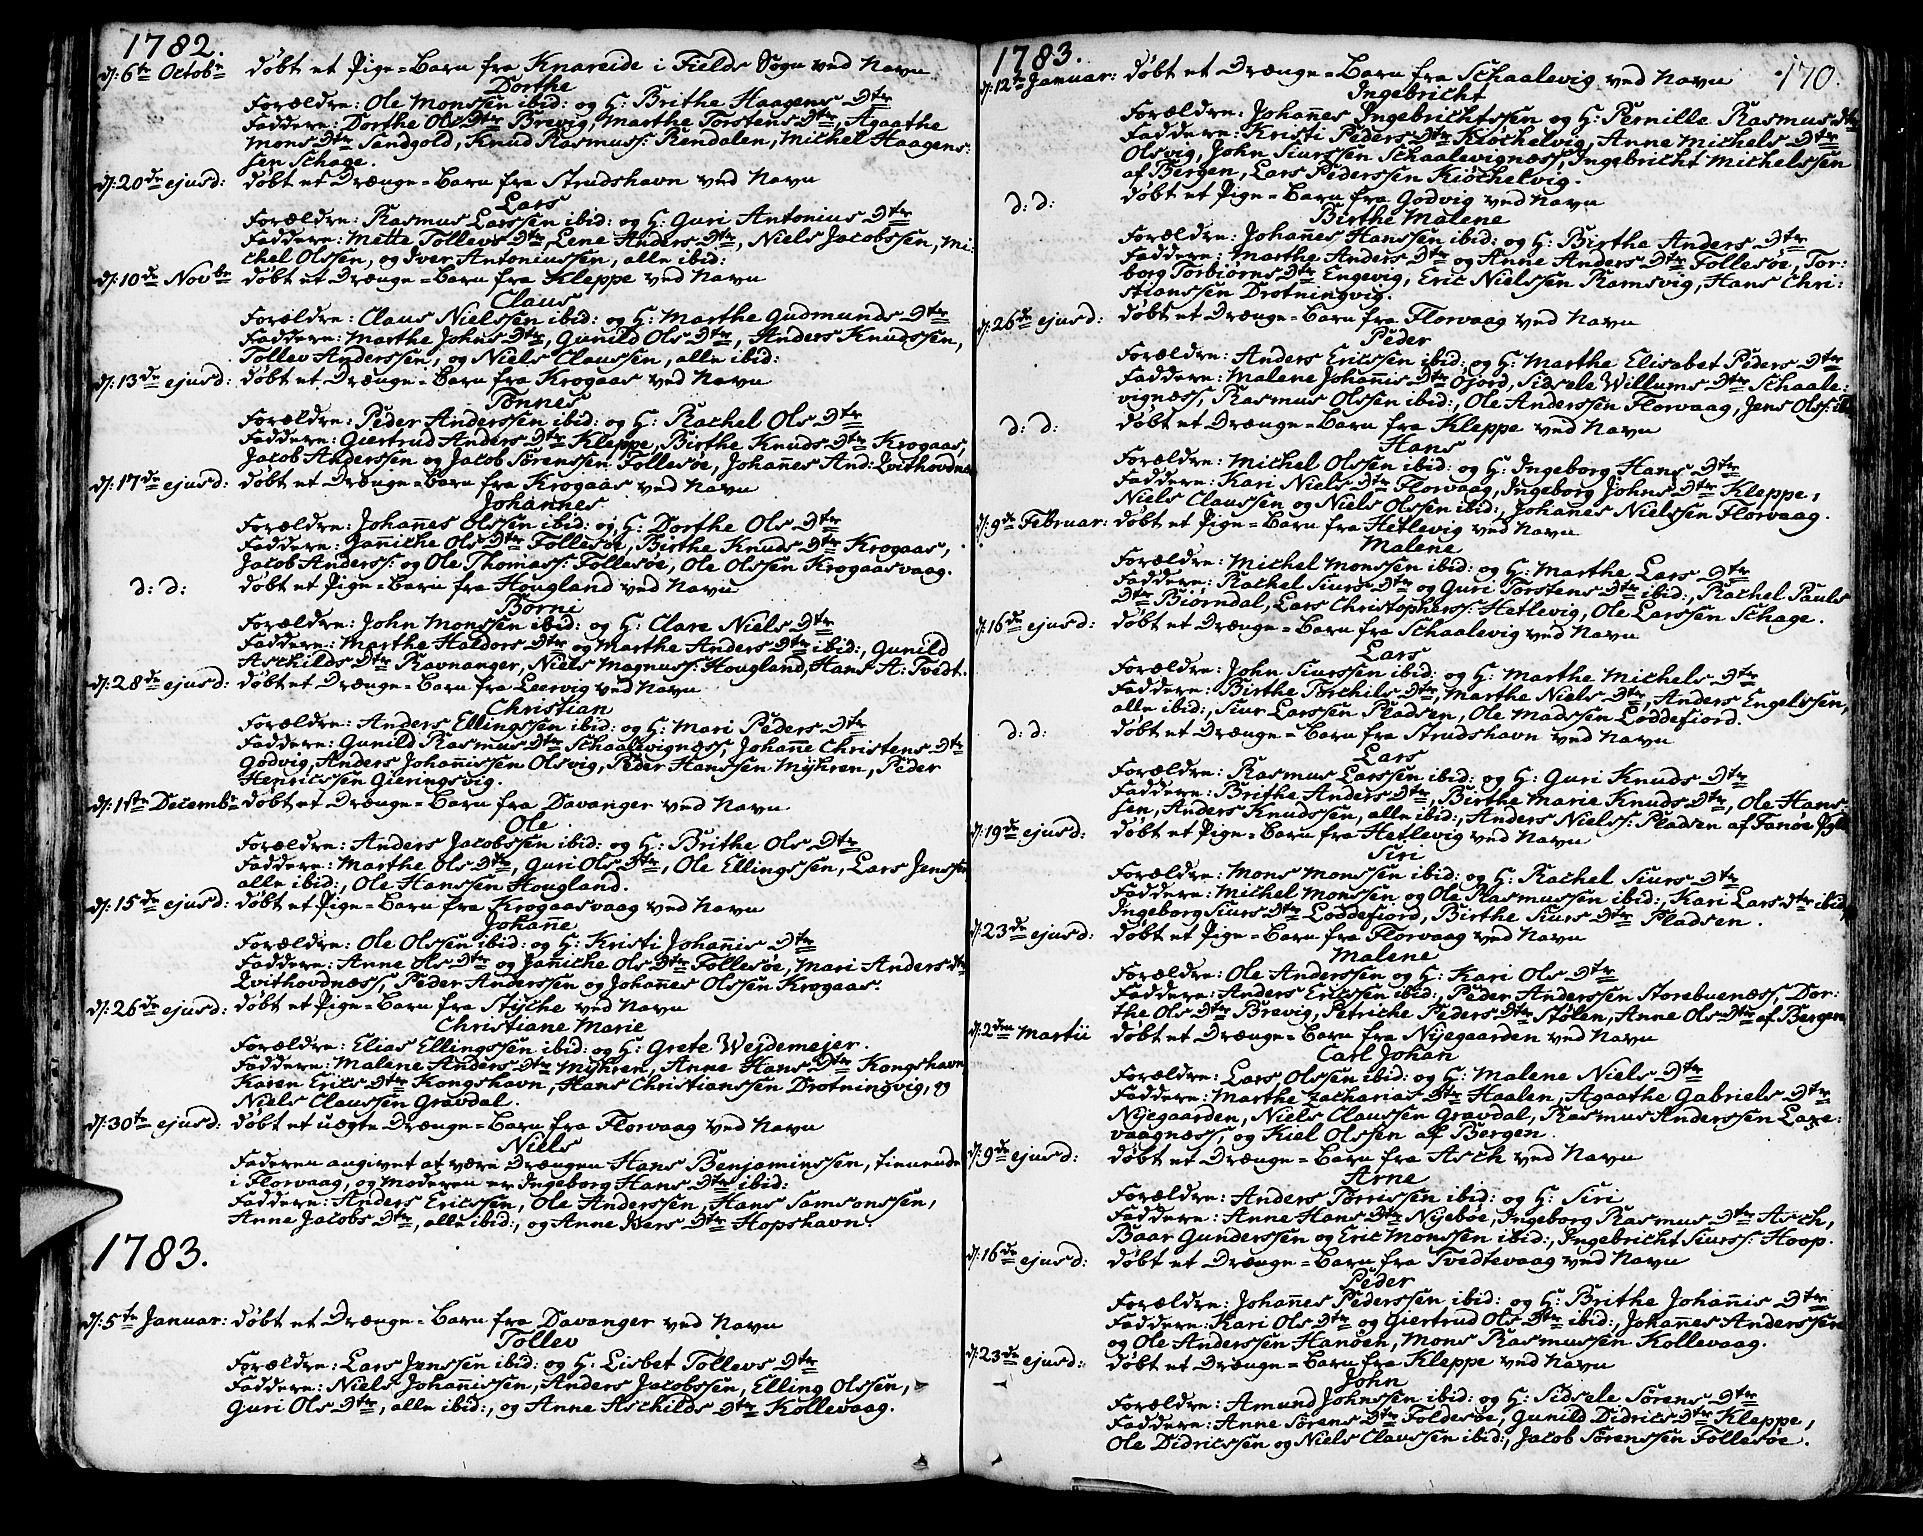 1782.
d: 6te Octobr døbt et Pige=Barn fra Knareide i Fields Sogn ved Navn
Dorthe
Forældre: Ole Monssen ibid: og H: Brithe Haagens Dtr
Faddere: Dorthe Ols Dtr Brevig, Marthe Torstens Dtr, Agaathe
Mons Dtr Sandgold, Knud Rasmuss: Rendalen, Michel Haagens:
sen Schage.
d: 20de ejusd: døbt et Drænge=Barn fra Strudshavn ved Navn
Lars
Forældre: Rasmus Larssen ibid: og H: Guri Antonius Dtr
Faddere: Mette Tollevs Dtr, Lene Anders Dtr, Niels Jacobssen, Mi:
chel Olssen, og Iver Antoniussen, alle ibid:
d: 10de Novbr døbt et Drænge=Barn fra Kleppe ved Navn
Claus
Forældre: Claus Nielssen ibid: og H: Marthe Gudmunds Dtr
Faddere: Marthe Johns Dtr, Gunild Ols Dtr, Anders Knudssen,
Tollev Anderssen, og Niels Claussen, alle ibid:
d: 13de ejusd: døbt et Drænge=Barn fra Krogaas ved Navn
Tønnes
Forældre: Peder Anderssen ibid: og H: Rachel Ols Dtr
Faddere: Giertrud Anders Dtr Kleppe, Birthe Knuds Dtr Krogaas,
Jacob Anderssen og Jacob Sørenssen Follesøe, Johañes And: Qvithovdnes
d: 17de ejusd: døbt et Drænge=Barn fra Krogaas ved Navn
Johannes
Forældre: Johañes Olssen ibid: og H: Dorthe Ols Dtr
Faddere: Jañiche Ols Dtr Follesøe, Birthe Knuds Dtr Krogaas,
Jacob Anderss: og Ole Thomass: Follesøe, Ole Olssen Krogaasvaag.
d: d: døbt et Pige=Barn fra Hougland ved Navn
Børni
Forældre: John Monssen ibid: og H: Clare Niels Dtr
Faddere: Marthe Haldors Dtr og Marthe Anders Dtr ibid:, Gunild
Aschilds Dtr Ravnanger, Niels Magnuss: Hougland, Hans A: Tvedt.
d: 28de ejusd: døbt et Drænge=Barn fra Leervig ved Navn
Christian
Forældre: Anders Ellingssen ibid: og H: Mari Peders Dtr
Faddere: Gunild Rasmus Dtr Schaalevignæss, Johañe Christens Dtr
Godvig, Anders Johañissen Olsvig, Peder Hanssen Myhren, Peder
Henricssen Gieringsvig.
d: 1ste Decembr døbt et Drænge=Barn fra Davanger ved Navn
Ole
Forældre: Anders Jacobssen ibid: og H: Brithe Ols Dtr
Faddere: Marthe Ols Dtr, Guri Ols Dtr, Ole Ellingssen, Lars Jenssen
alle ibid:, Ole Hanssen Hougland.
d: 15de ejusd: døbt et Pige=Barn fra Krogaasvaag ved Navn
Johañe
Forældre: Ole Olssen ibid: og H: Kristi Johañis Dtr
Faddere: Anne Ols Dtr og Jañiche Ols Dtr Follesøe, Mari Anders Dtr
Qvithovdnæss, Peder Anderssen og Johañes Olssen Krogaas.
d: 26de ejusd: døbt et Pige=Barn fra Stÿche ved Navn
Christiane Marie
Forældre: Elias Ellingssen ibid: og H: Grete Wejdemejer.
Faddere: Malene Anders Dtr Myhren, Anne Hans Dtr Kongshavn
Karen Erics Dtr Kongshavn, Hans Christianssen Drotningvig, og
Niels Claussen Gravdal.
d: 30te ejusd: døbt et uægte Drænge=Barn fra Florvaag ved Navn
Niels
Faderen angivet at være Drængen Hans Benjaminssen, tienende
i Florvaag, og Moderen er Ingeborg Hans Dtr ibid:
Faddere: Anders Ericssen, Ole Anderssen, Hans Samsonssen,
Anne Jacobs Dtr, alle ibid:, og Anne Ivers Dtr Hopshavn.
1783.
d: 5te Januar: døbt et Drænge=Barn fra Davanger ved Navn
Tollev
Forældre: Lars Jenssen ibid: og H: Lisbet Tollevs Dtr
Faddere: Niels Johañissen, Anders Jacobssen, Elling Olssen,
Guri Ols Dtr, alle ibid:, og Anne Aschilds Dtr Kollevaag.
1783.
170.
d: 12te Januar: døbt et Drænge=Barn fra Schaalevig ved Navn
Ingebricht
Forældre: Johañes Ingebrichtssen og H: Pernilla Rasmus Dtr
Faddere: Kristi Peders Dtr Kiøchelvig, Anne Michels Dtr
Olsvig, John Siurssen Schaalevignæss, Ingebricht Michelssen
af Bergen, Lars Pederssen Kiøchelvig.
d: d: døbt et Pige=Barn fra Godvig ved Navn
Birthe Malene
Forældre: Johañes Hanssen ibid: og H: Birthe Anders Dtr
Faddere: Marthe Anders Dtr og Anne Anders Dtr Follesøe, Tor:
borg Torbiørns Dtr Engevig, Eric Nielssen Ramsvig, Hans Chri:
stianssen Drotningvig.
d: 26de ejusd: døbt et Drænge=Barn fra Florvaag ved Navn
Peder
Forældre: Anders Ericssen ibid: og H: Marthe Elisabet Peders Dtr
Faddere: Malene Johañis Dtr Ofjord, Sidsele Willums Dtr Schaale:
vignæss, Rasmus Olssen ibid:, Ole Anderssen Florvaag, Jens Olss: ibid
d: d: døbt et Drænge=Barn fra Kleppe ved Navn
Hans
Forældre: Michel Olssen ibid: og H: Ingeborg Hans Dtr
Faddere: Kari Niels Dtr Florvaag, Ingeborg Johns Dtr Kleppe,
Niels Claussen og Niels Olssen ibid:, Johañes Nielssen Florvaag.
d: 9de Februar: døbt et Pige=Barn fra Hetlevig ved Navn
Malene
Forældre: Michel Monssen ibid: og H: Marthe Lars Dtr
Faddere: Rachel Siurs Dtr og Guri Torstens Dtr ibid:, Rachel Pauls
Dtr Biørndal, Lars Christophers: Hetlevig, Ole Larssen Schage.
d: 16de ejusd: døbt et Drænge=Barn fra Schaalevig ved Navn
Lars
Forældre: John Siurssen ibid: og H: Marthe Michels Dtr
Faddere: Birthe Torchils Dtr, Marthe Niels Dtr, Anders Engelssen,
alle ibid:, Siur Larssen Pladsen, Ole Madssen Loddefiord.
d: d: døbt et Drænge=Barn fra Strudshavn ved Navn
Lars
Forældre: Rasmus Larssen ibid: og H: Guri Knuds Dtr
Faddere: Brithe Anders Dtr, Birthe Marie Knuds Dtr, Ole Hans:
sen, Anders Knudssen, alle ibid:, Anders Nielss: Pladsen af Fanøe
d: 19de ejusd: døbt et Pige=Barn fra Hetlevig ved Navn
Siri
Forældre: Mons Monssen ibid: og H: Rachel Siurs Dtr
Faddere: Michel Monssen og Ole Rasmussen ibid:, Kari Lars Dtr ibid,
Ingeborg Siurs Dtr Loddefiord, Birthe Siurs Dtr Pladsen.
d: 23de ejusd: døbt et Pige=Barn fra Florvaag ved Navn
Malene
Forældre: Ole Anderssen og H: Kari Ols Dtr
Faddere: Anders Ericssen ibid:, Peder Anderssen Storebuenæss, Dor:
the Ols Dtr Brevig, Petriche Peders Dtr Stølen, Anne Ols Dtr af Bergen
d: 2den Martii døbt et Drænge=Barn fra Nÿegaarden ved Navn
Carl Johan
Forældre: Lars Olssen ibid: og H: Malene Niels Dtr
Faddere: Marthe Zacharias Dtr Haalen, Agaathe Gabriels Dtr
Nÿegaarden, Niels Claussen Gravdal, Rasmus Anderssen Laxe:
vaagnæss, og Kiel Olssen af Bergen.
d: 9de ejusd: døbt et Drænge=Barn fra Asch ved Navn
Arne
Forældre: Anders Torrissen ibid: og H: Siri
Faddere: Anne Hans Dtr Nÿebøe, Ingeborg Rasmus Dtr Asch,
Baar Gunderssen og Eric Monssen ibid:, Ingebricht Siurss: Hoop.
d: 16de ejusd: døbt et Drænge=Barn fra Tvedtevaag ved Navn
Peder
Forældre: Johañes Pederssen ibid: og H: Brithe Johañis Dtr
Faddere: Kari Ols Dtr og Giertrud Ols Dtr ibid:, Johañes Anderssen
og Ole Anderssen Hanøen, Mons Rasmussen Kollevaag.
d: 23de ejusd: døbt et Drænge=Barn fra Kleppe ved Navn
John
Forældre: Amund Johnssen ibid: og H: Sidsele Sørens Dtr
Faddere: Anne Sørens Dtr Foldesøe, Gunild Didrics Dtr Kleppe,
Ole Didricssen og Niels Claussen ibid:, Jacob Sørenssen Follesøe.